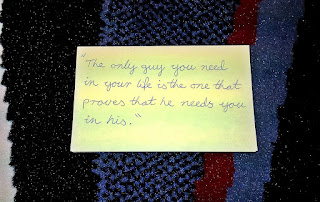 "The only guy you need
in your life is the one that
proves that he needs you
in his."